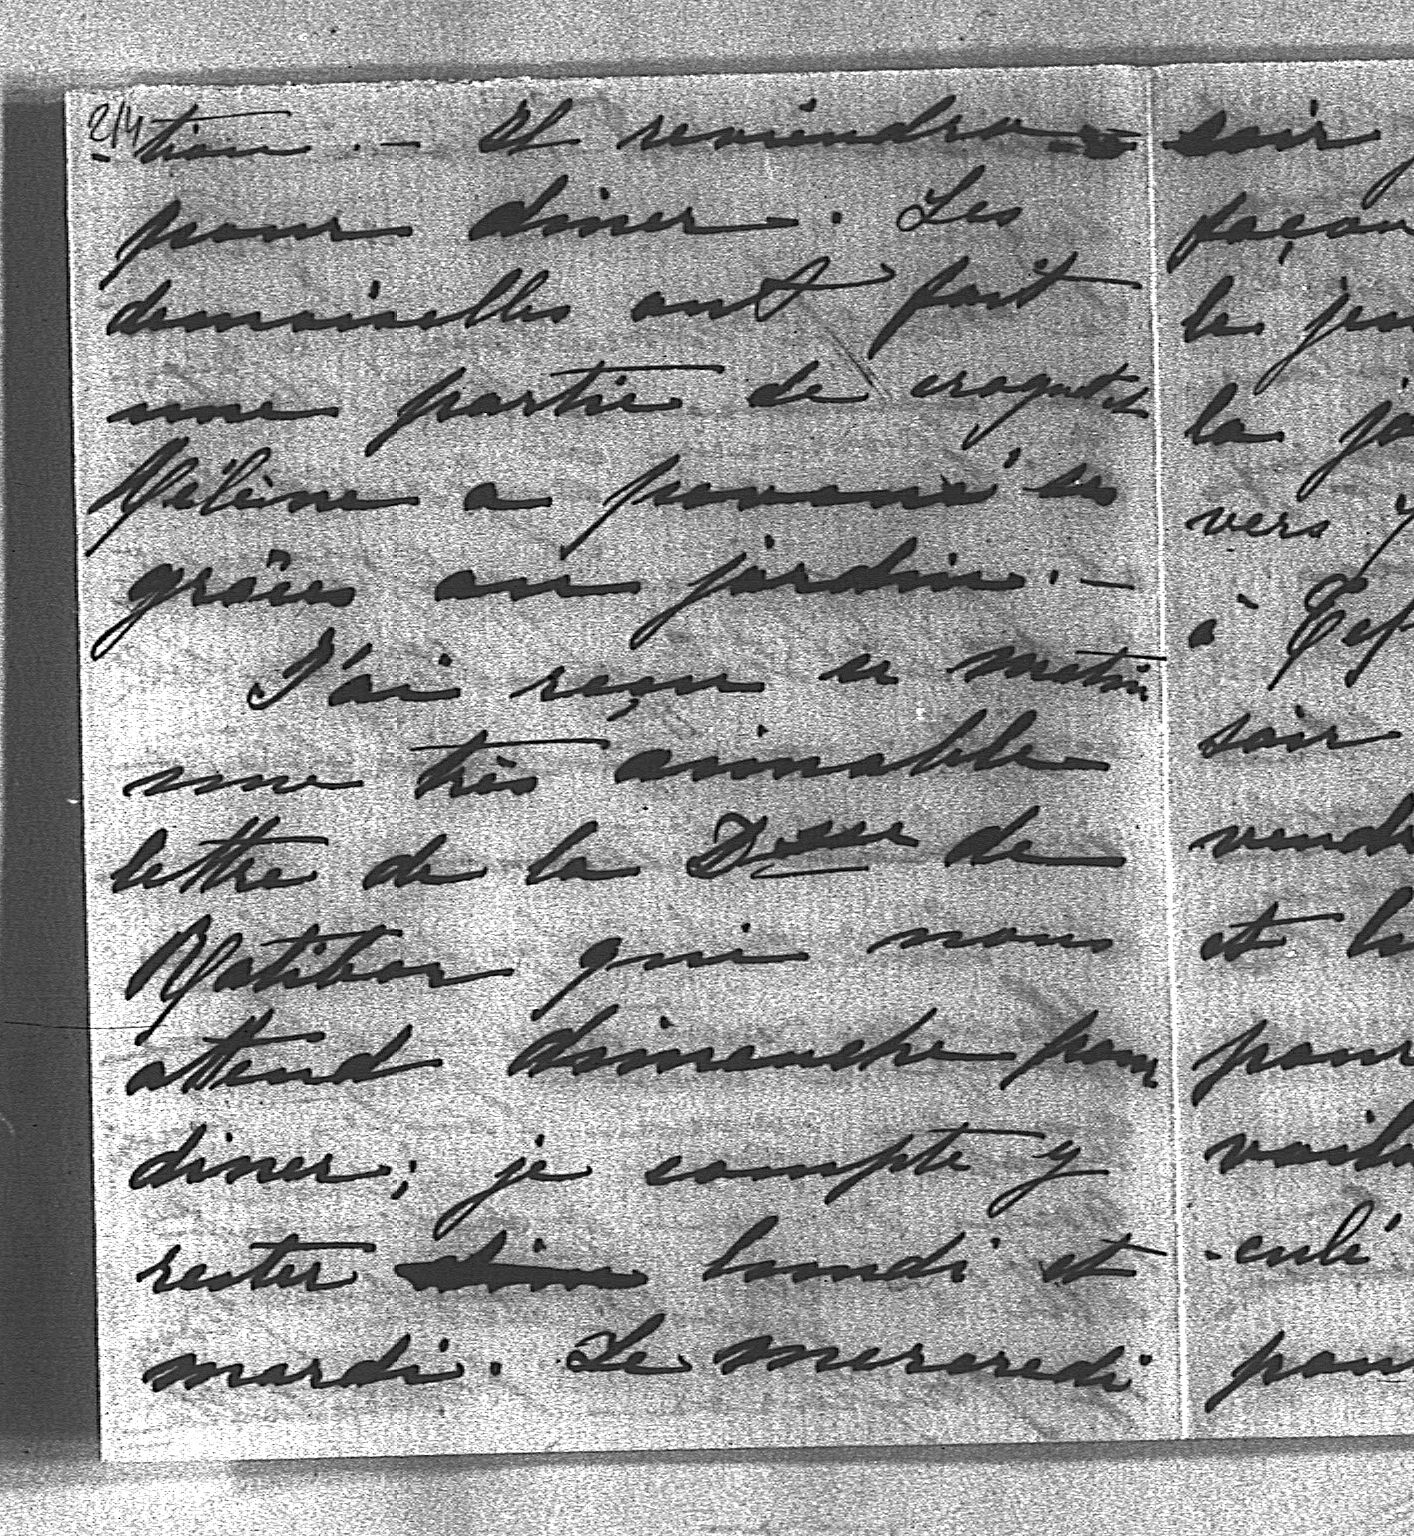 2/4
tion. — Il reviendra
pour diner. Les
demoiselles ont fait
une partie de croquet
Hélène a promené ses
grâces au jardin. —
J'ai reçu ce matin
une très aimable
lettre de la Dsse de
Ratibor qui nous
attend dimanche pour
diner; je compte y
rester lundi et
mardi. Le mercredi
soir
façon
le
la
vers
à
soir
et
pour
-culé